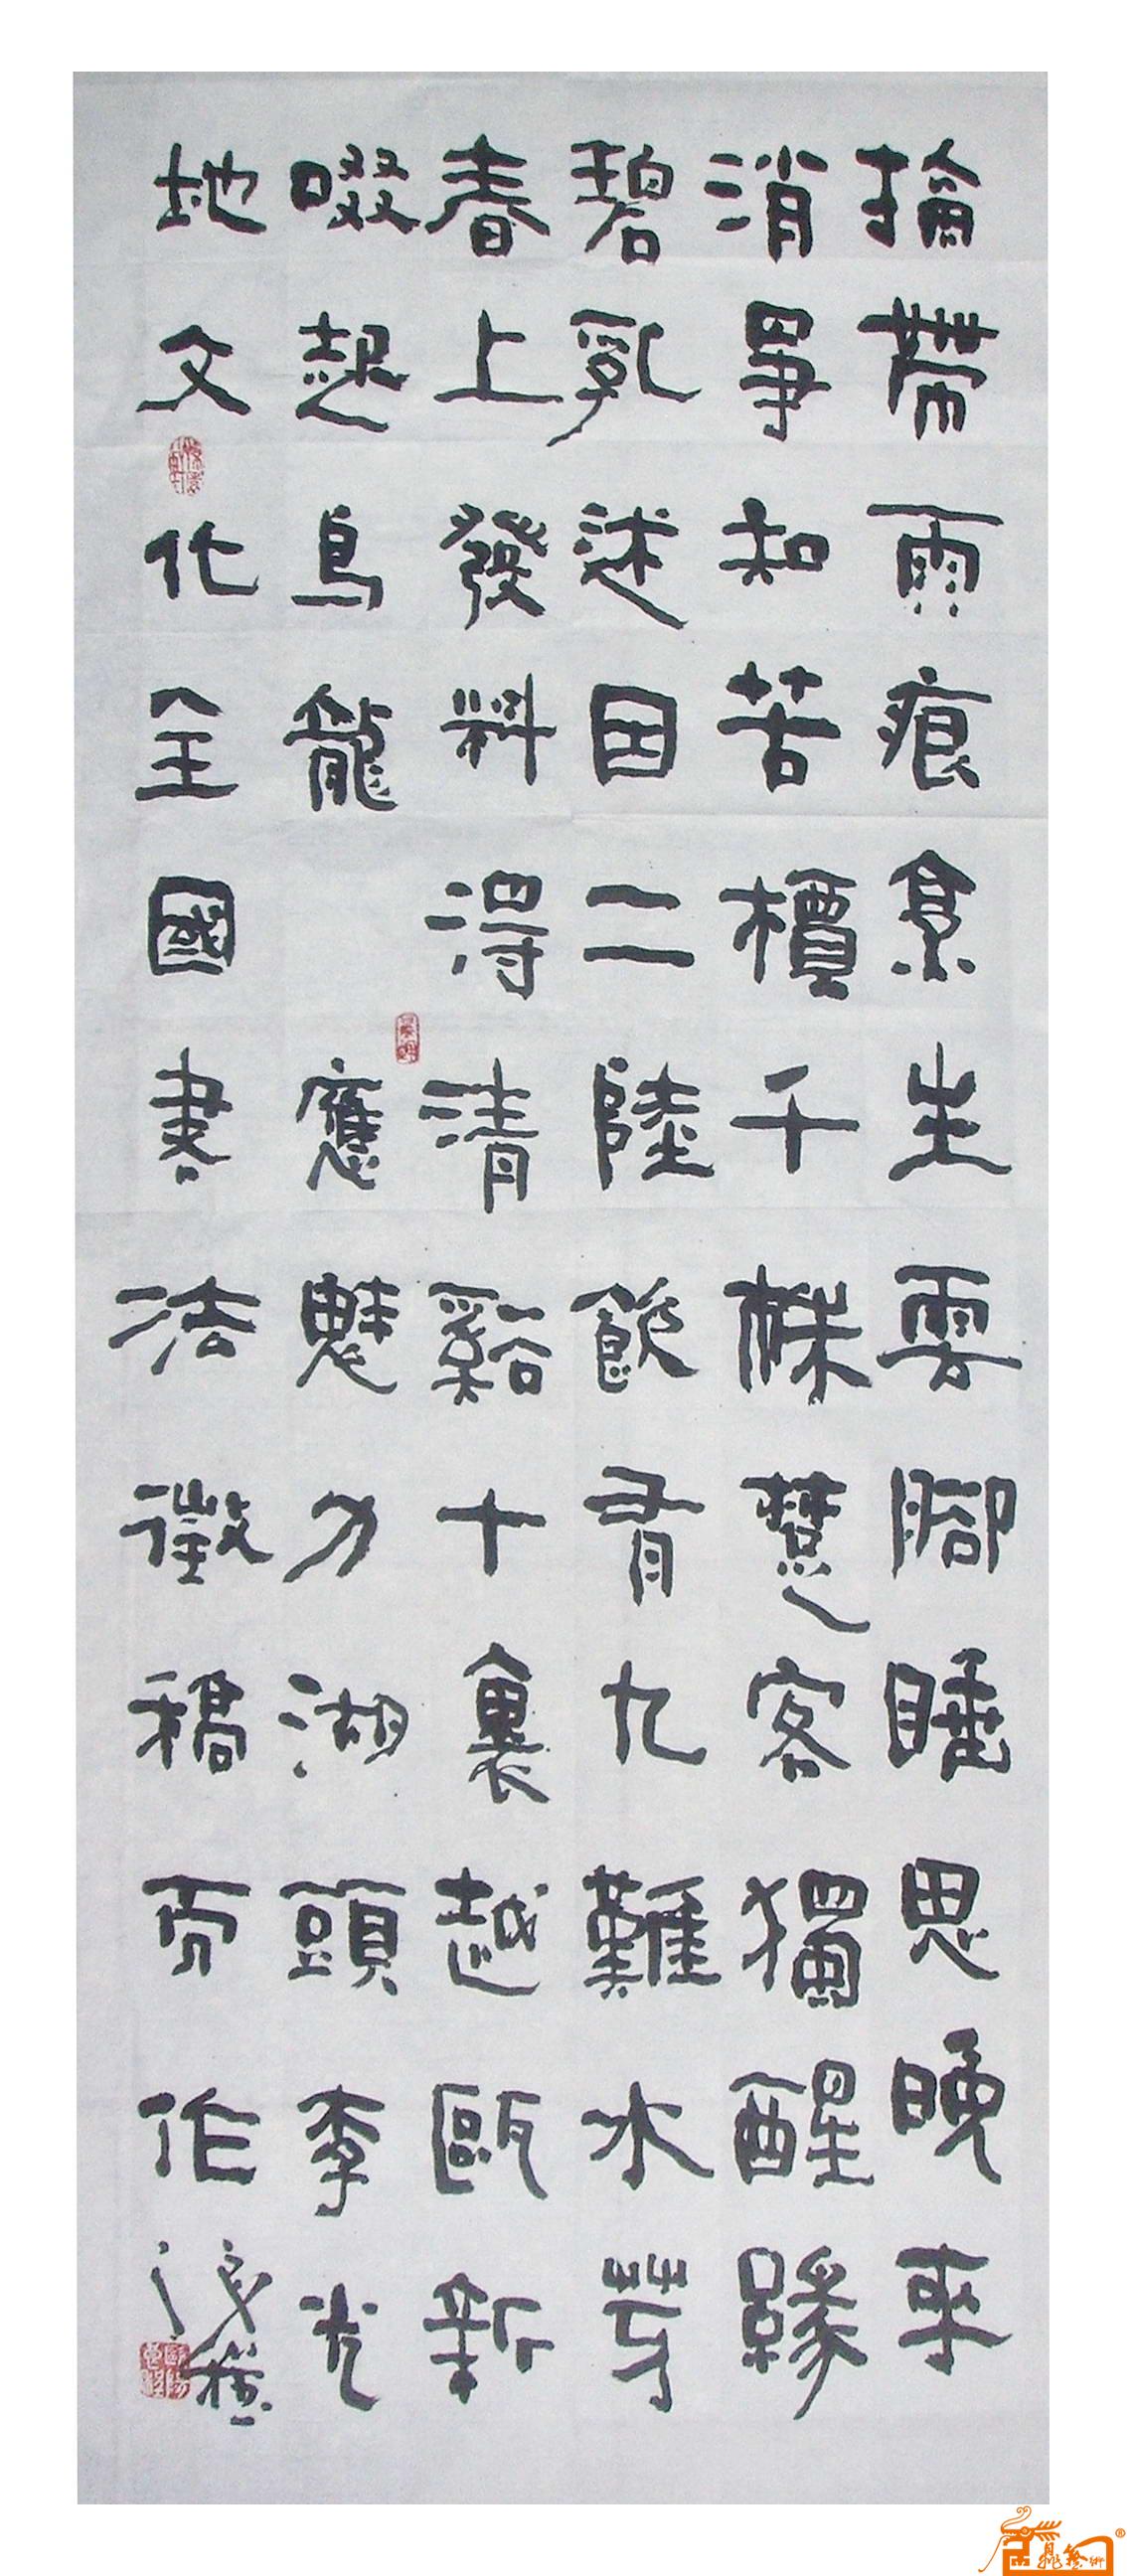 掄帶雨痕烹生雲腳睡思晚來
消爭知苦檟千株楚客獨醒緣
碧乳述因二陸飲有九難水芽
春上發料得清谿十裏越甌新
啜起烏龍 應魅力湖頭李光
地文化全國書法徵稿而作